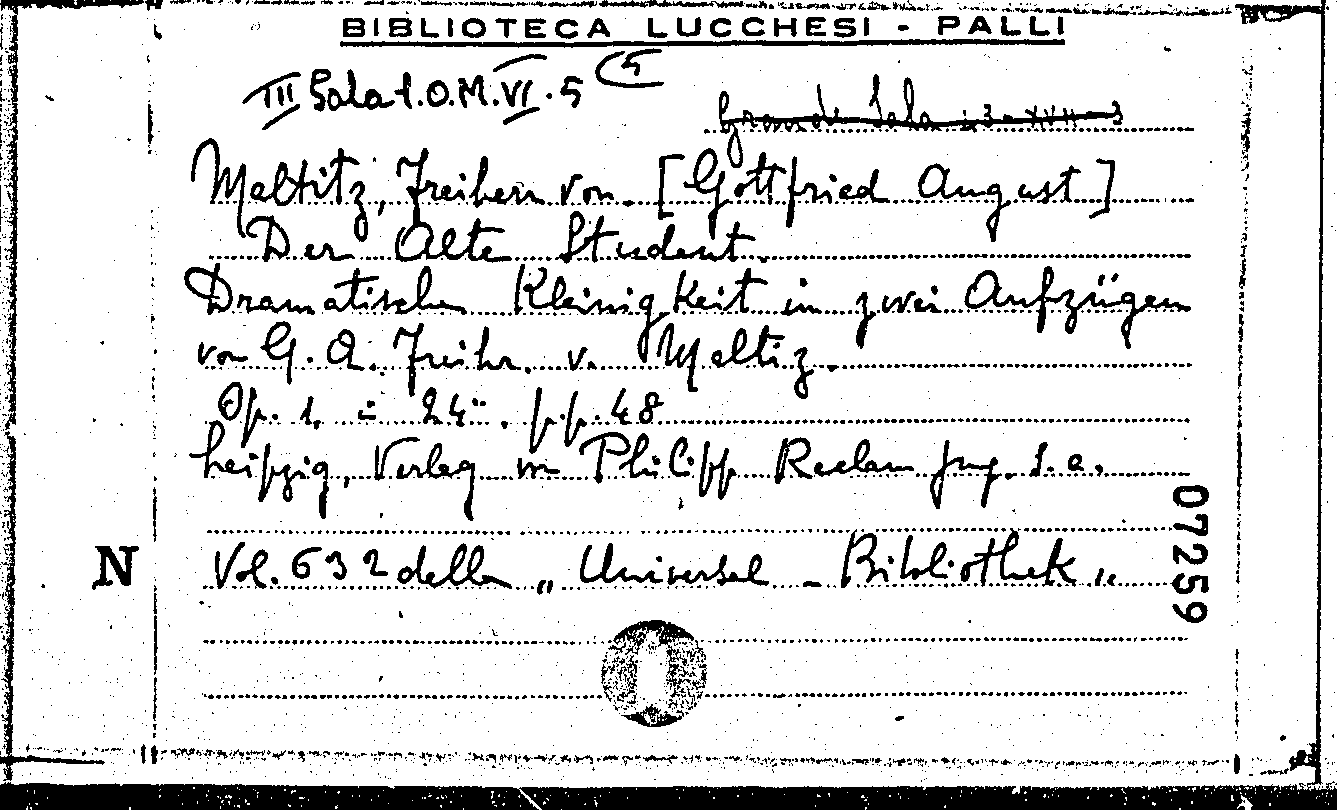 BIBLIOTECA LUCCHESI - PALLI
III Sala 1.O.M.VI.5 (5
Grande Sala 23-XVII-3
Maltitz, Freiherr von. [Gottfried August]
Der Alte Student.
Dramatische Kleinigkeit in zwei Aufzügen
von G. A. Freihr. v. Maltiz.
Op. 1. in 24°. pp. 48
Leipzig, Verlag von Philipp Reclam jun. s.a.
07259
N
Vol. 632 della „ Universal - Bibliothek „